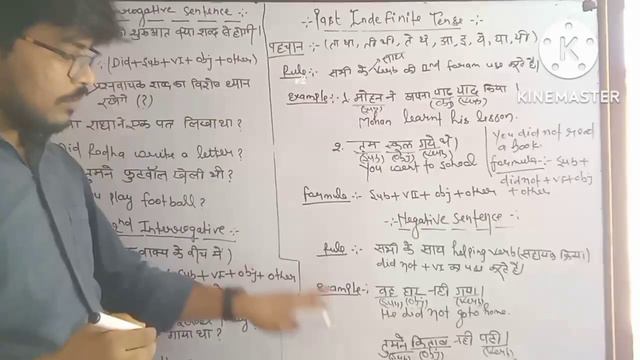 rrogative Sentence :-
शुरुआत क्या शब्द से होगी।
(Did + Sub + V1 + obj + other)
प्रश्नवाचक शब्द का विशेष ध्यान
रखेंगे (?)
राधा ने एक पत्र लिखा था?
Did Radha write a letter?
तुमने फुटबॉल खेली थी?
you Play football?
2nd Interrogative
वाक्य के बीच में)
Sub + V1 + obj + other
गया था?
-:- Past Indefinite Tense -:-
पहचान :- (ता था, ती थी, ते थे, आ, ई, ये, या, यी)
Rule:- सभी के साथ Verb की IInd foram use करते हैं।
Example:- 1. मोहन ने अपना पाठ याद किया।
(Sub) (obj) (verb)
Mohan learnt his lesson.
2. तुम स्कूल गये थे।
(Sub) (obj) (verb)
You went to school
You did not read
a book.
formula:- Sub +
did not + V1 + obj
+ other
formula:- Sub + VII + obj + other
-:- Negative Sentence -:-
Rule:- सभी के साथ helping verb (सहायक क्रिया)
did not + V1 का use करते हैं।
Example:- वह घर नही गया।
(Sub) (obj) (verb)
He did not go to home.
तुमने किताब नही पढी।
(Sub) (obj) (verb)
KINEMASTER